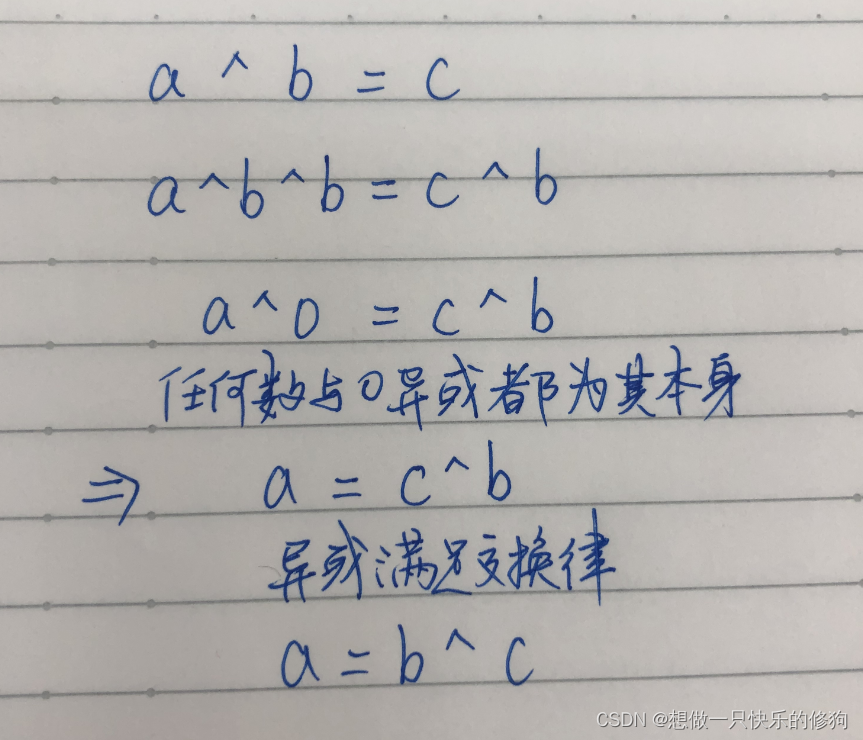 a ^ b = c
a ^ b ^ b = c ^ b
a ^ 0 = c ^ b
任何数与0异或都为其本身
⇒ a = c ^ b
异或满足交换律
a = b ^ c
CSDN @想做一只快乐的修狗